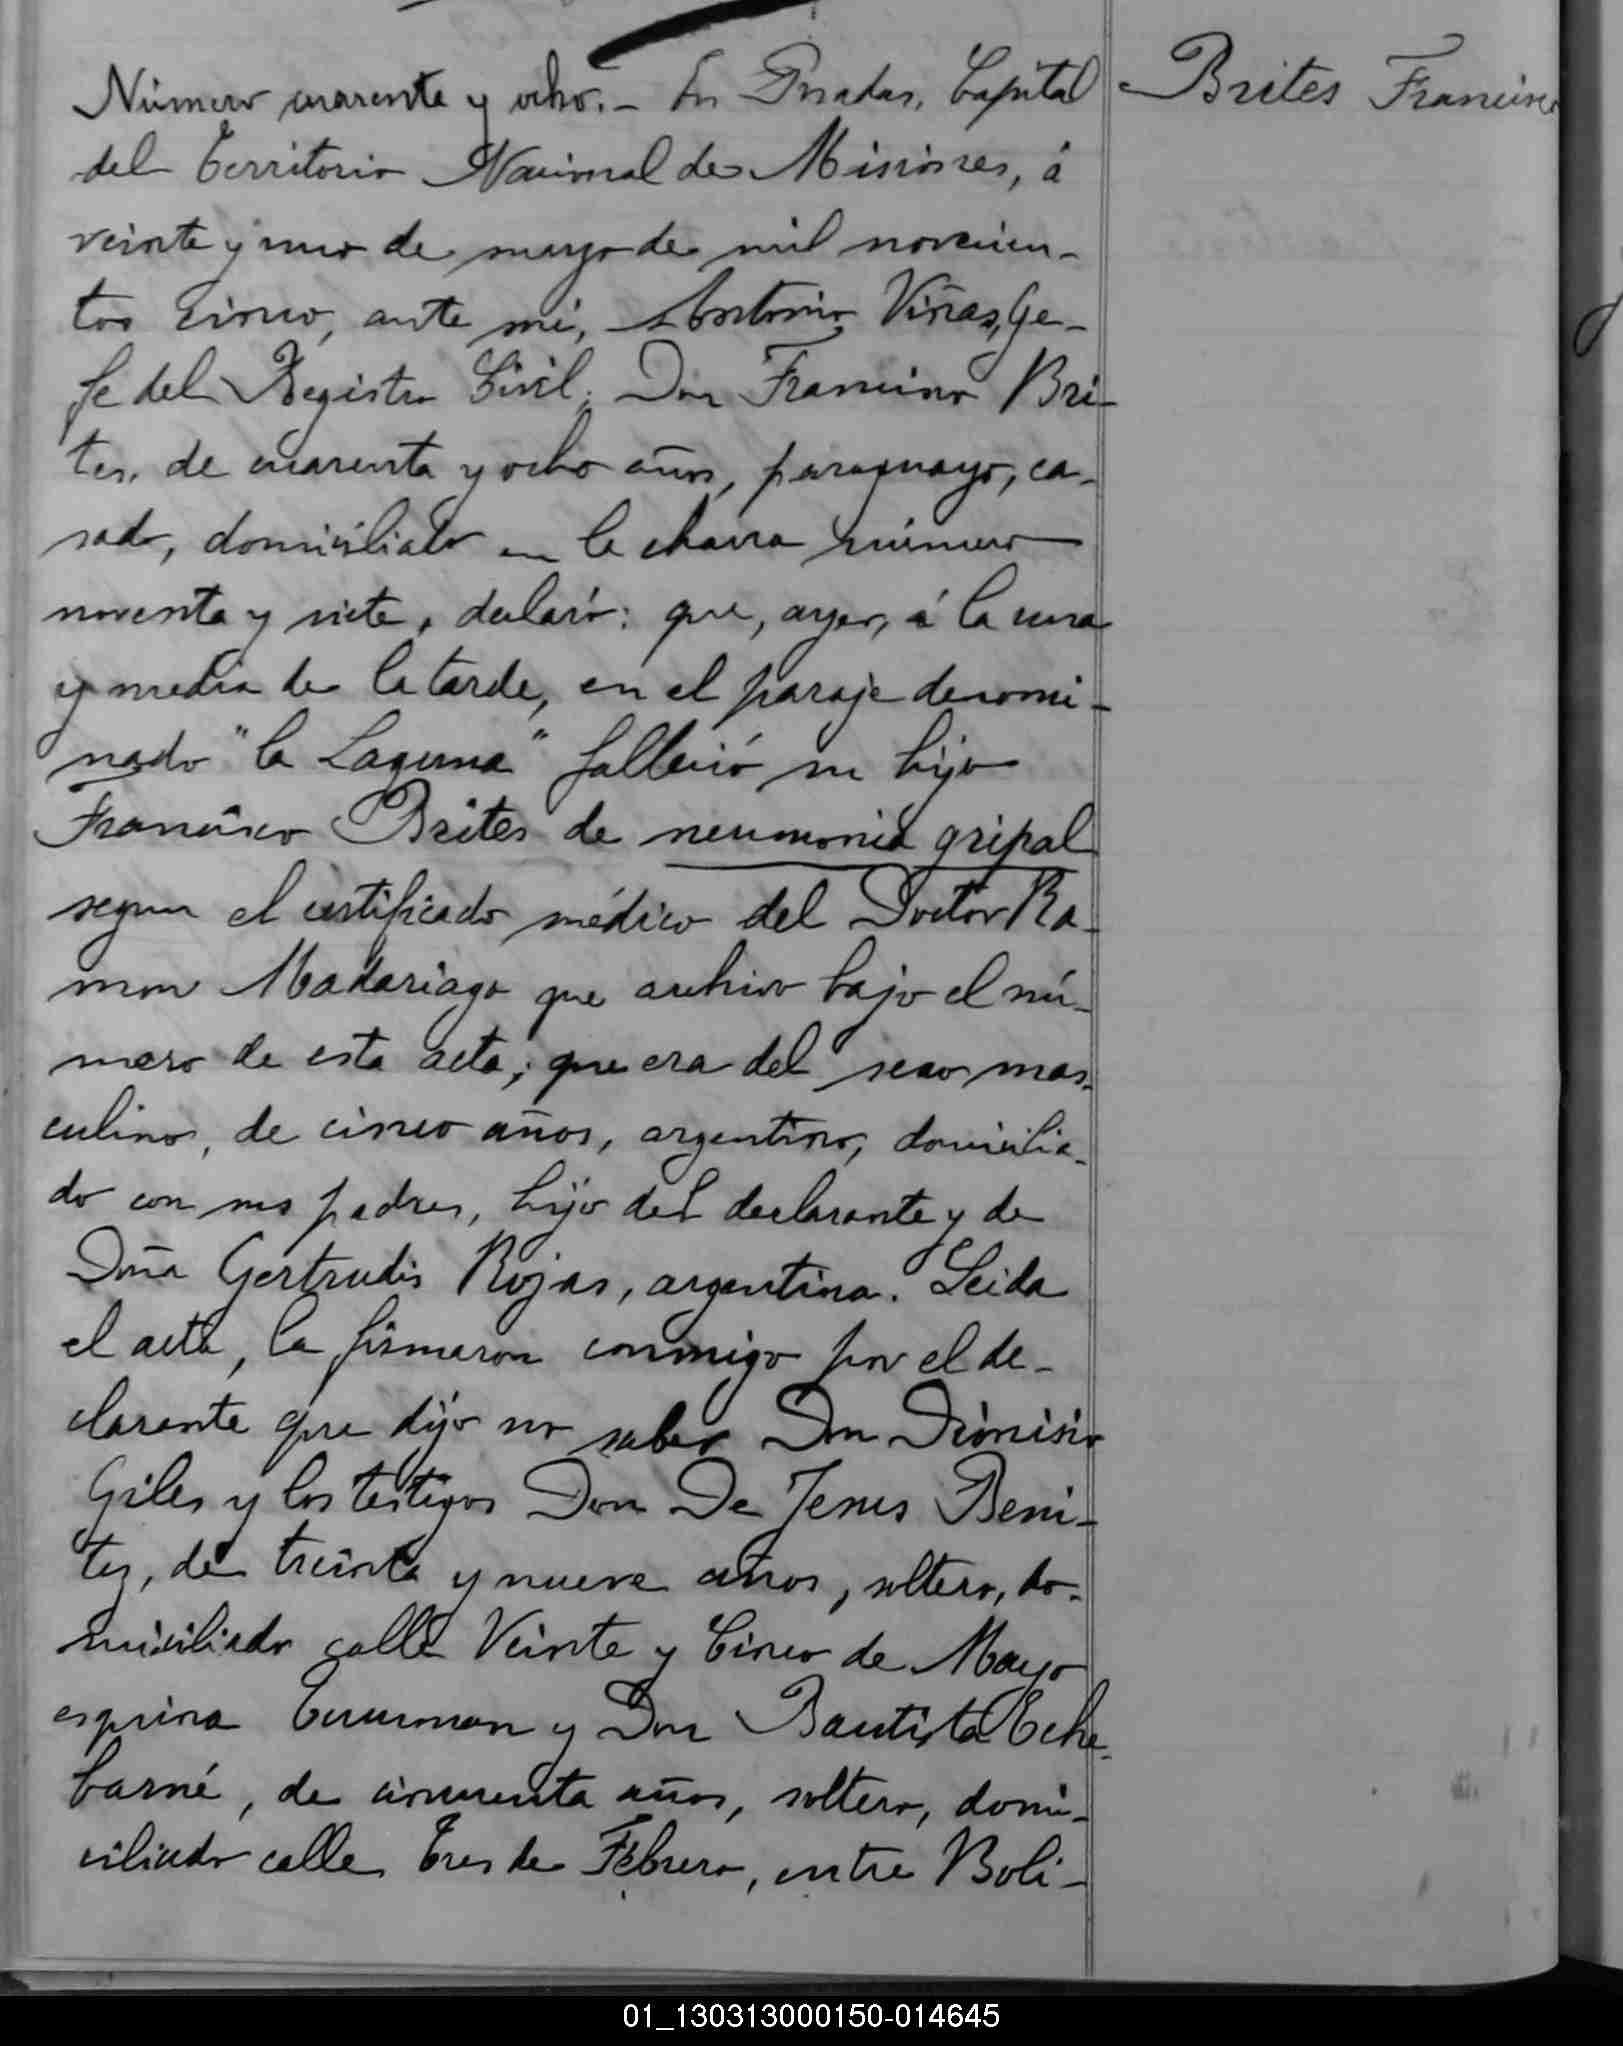 Número cuarenta y ocho.- En Posadas, Capital
Brites Francisco
del Territorio Nacional de Misiones, á
veinte y uno de mayo de mil novecien-
tos cinco, ante mí, Antonio Viñas, Ge-
fe del Registro Civil, Don Francisco Bri-
tes, de cuarenta y ocho años, paraguayo, ca-
sado, domiciliado en la chacra número
noventa y siete, declaró: que, ayer, á la una
y media de la tarde, en el paraje denomi-
nado "la Laguna" falleció su hijo
Francisco Brites de neumonia gripal
segun el certificado médico del Doctor Ra-
mon Madariaga que archivo bajo el nú-
mero de esta acta; que era del sexo mas-
culino, de cinco años, argentino, domicilia-
do con sus padres, hijo del declarante y de
Doña Gertrudis Rojas, argentina. Leida
el acta, la firmaron conmigo por el de-
clarante que dijo no saber Don Dionisio
Giles y los testigos Don De Jesus Beni-
tez, de treinta y nueve años, soltero, do-
miciliado calle Veinte y Cinco de Mayo
esquina Tucuman y Don Bautista Eche-
barné, de cincuenta años, soltero, domi-
ciliado calle Tres de Febrero, entre Boli-
01_130313000150-014645